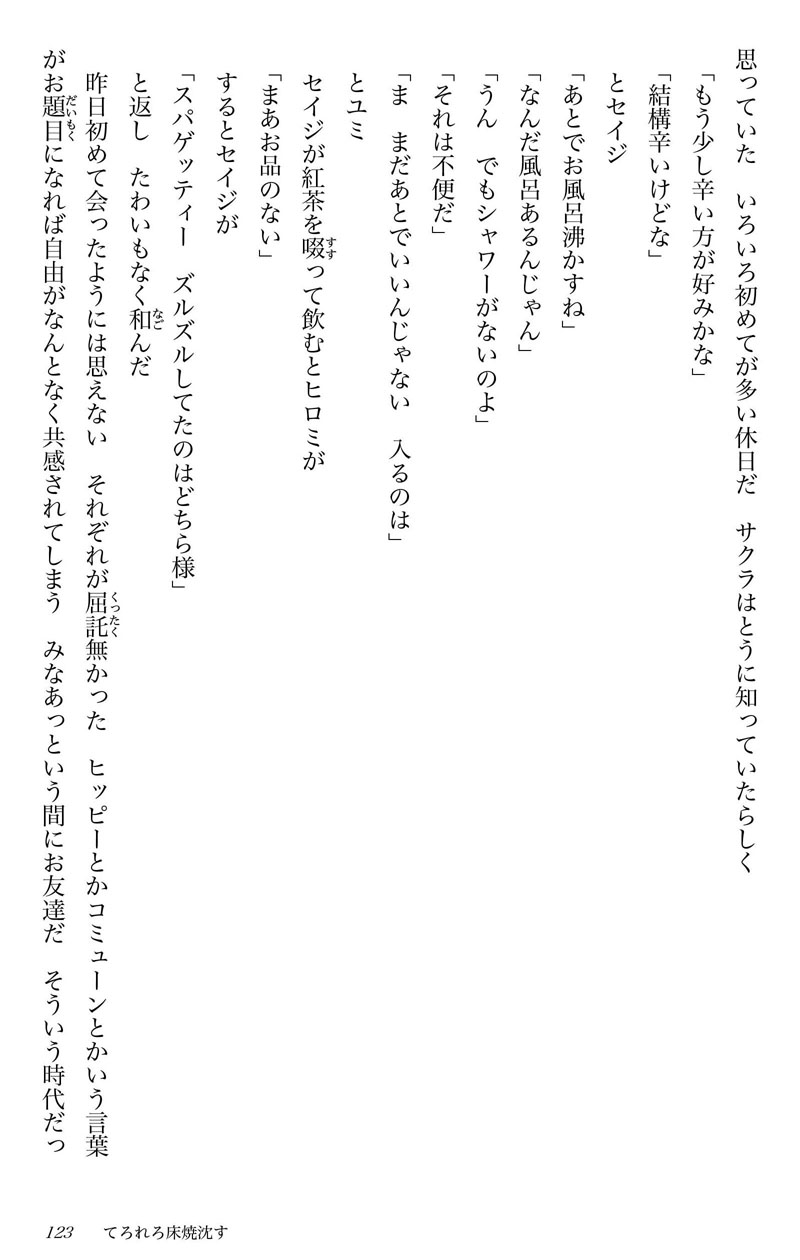 思っていた　いろいろ初めてが多い休日だ　サクラはとうに知っていたらしく
「もう少し辛い方が好みかな」
「結構辛いけどな」
とセイジ
「あとでお風呂沸かすね」
「なんだ風呂あるんじゃん」
「うん　でもシャワーがないのよ」
「それは不便だ」
「ま　まだあとでいいんじゃない　入るのは」
とユミ
セイジが紅茶を啜って飲むとヒロミが
「まあお品のない」
するとセイジが
「スパゲッティー　ズルズルしてたのはどちら様」
と返し　たわいもなく和んだ
昨日初めて会ったようには思えない　それぞれが屈託無かった　ヒッピーとかコミューンとかいう言葉
がお題目になれば自由がなんとなく共感されてしまう　みなあっという間にお友達だ　そういう時代だっ
すす
なご
くったく
だいもく
123　てろれろ床焼沈す